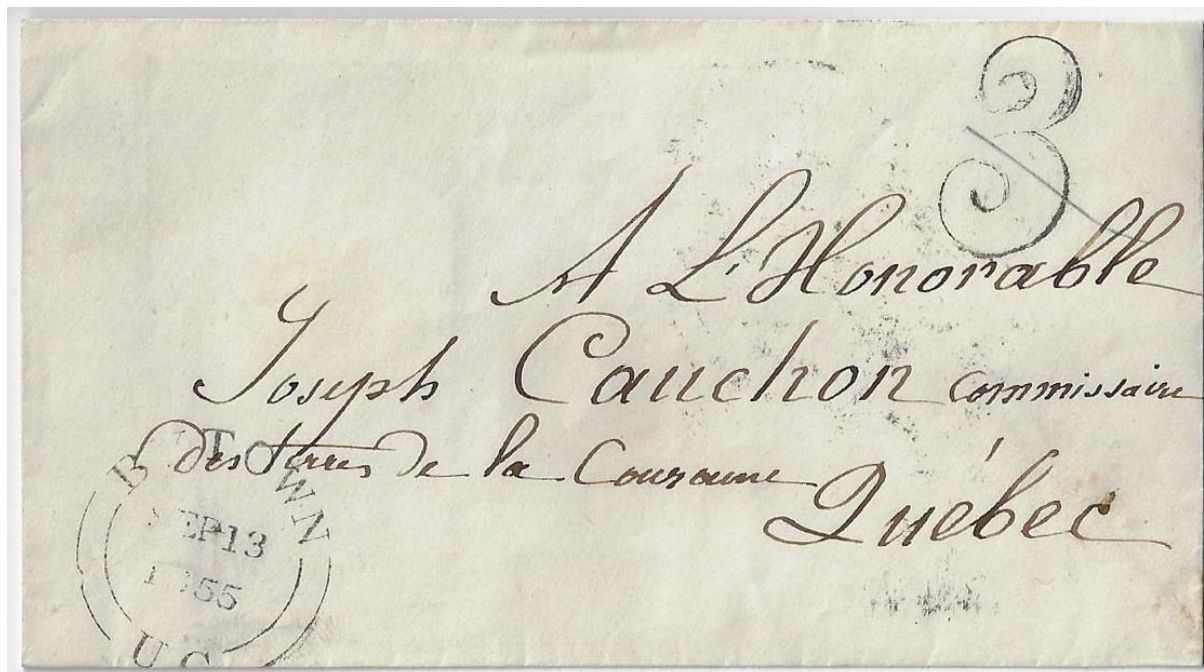 3
A L'Honorable
Joseph Cauchon Commissaire
des terres de la Couronne
Québec
BYTOWN
SEP 13
1855
U.C.